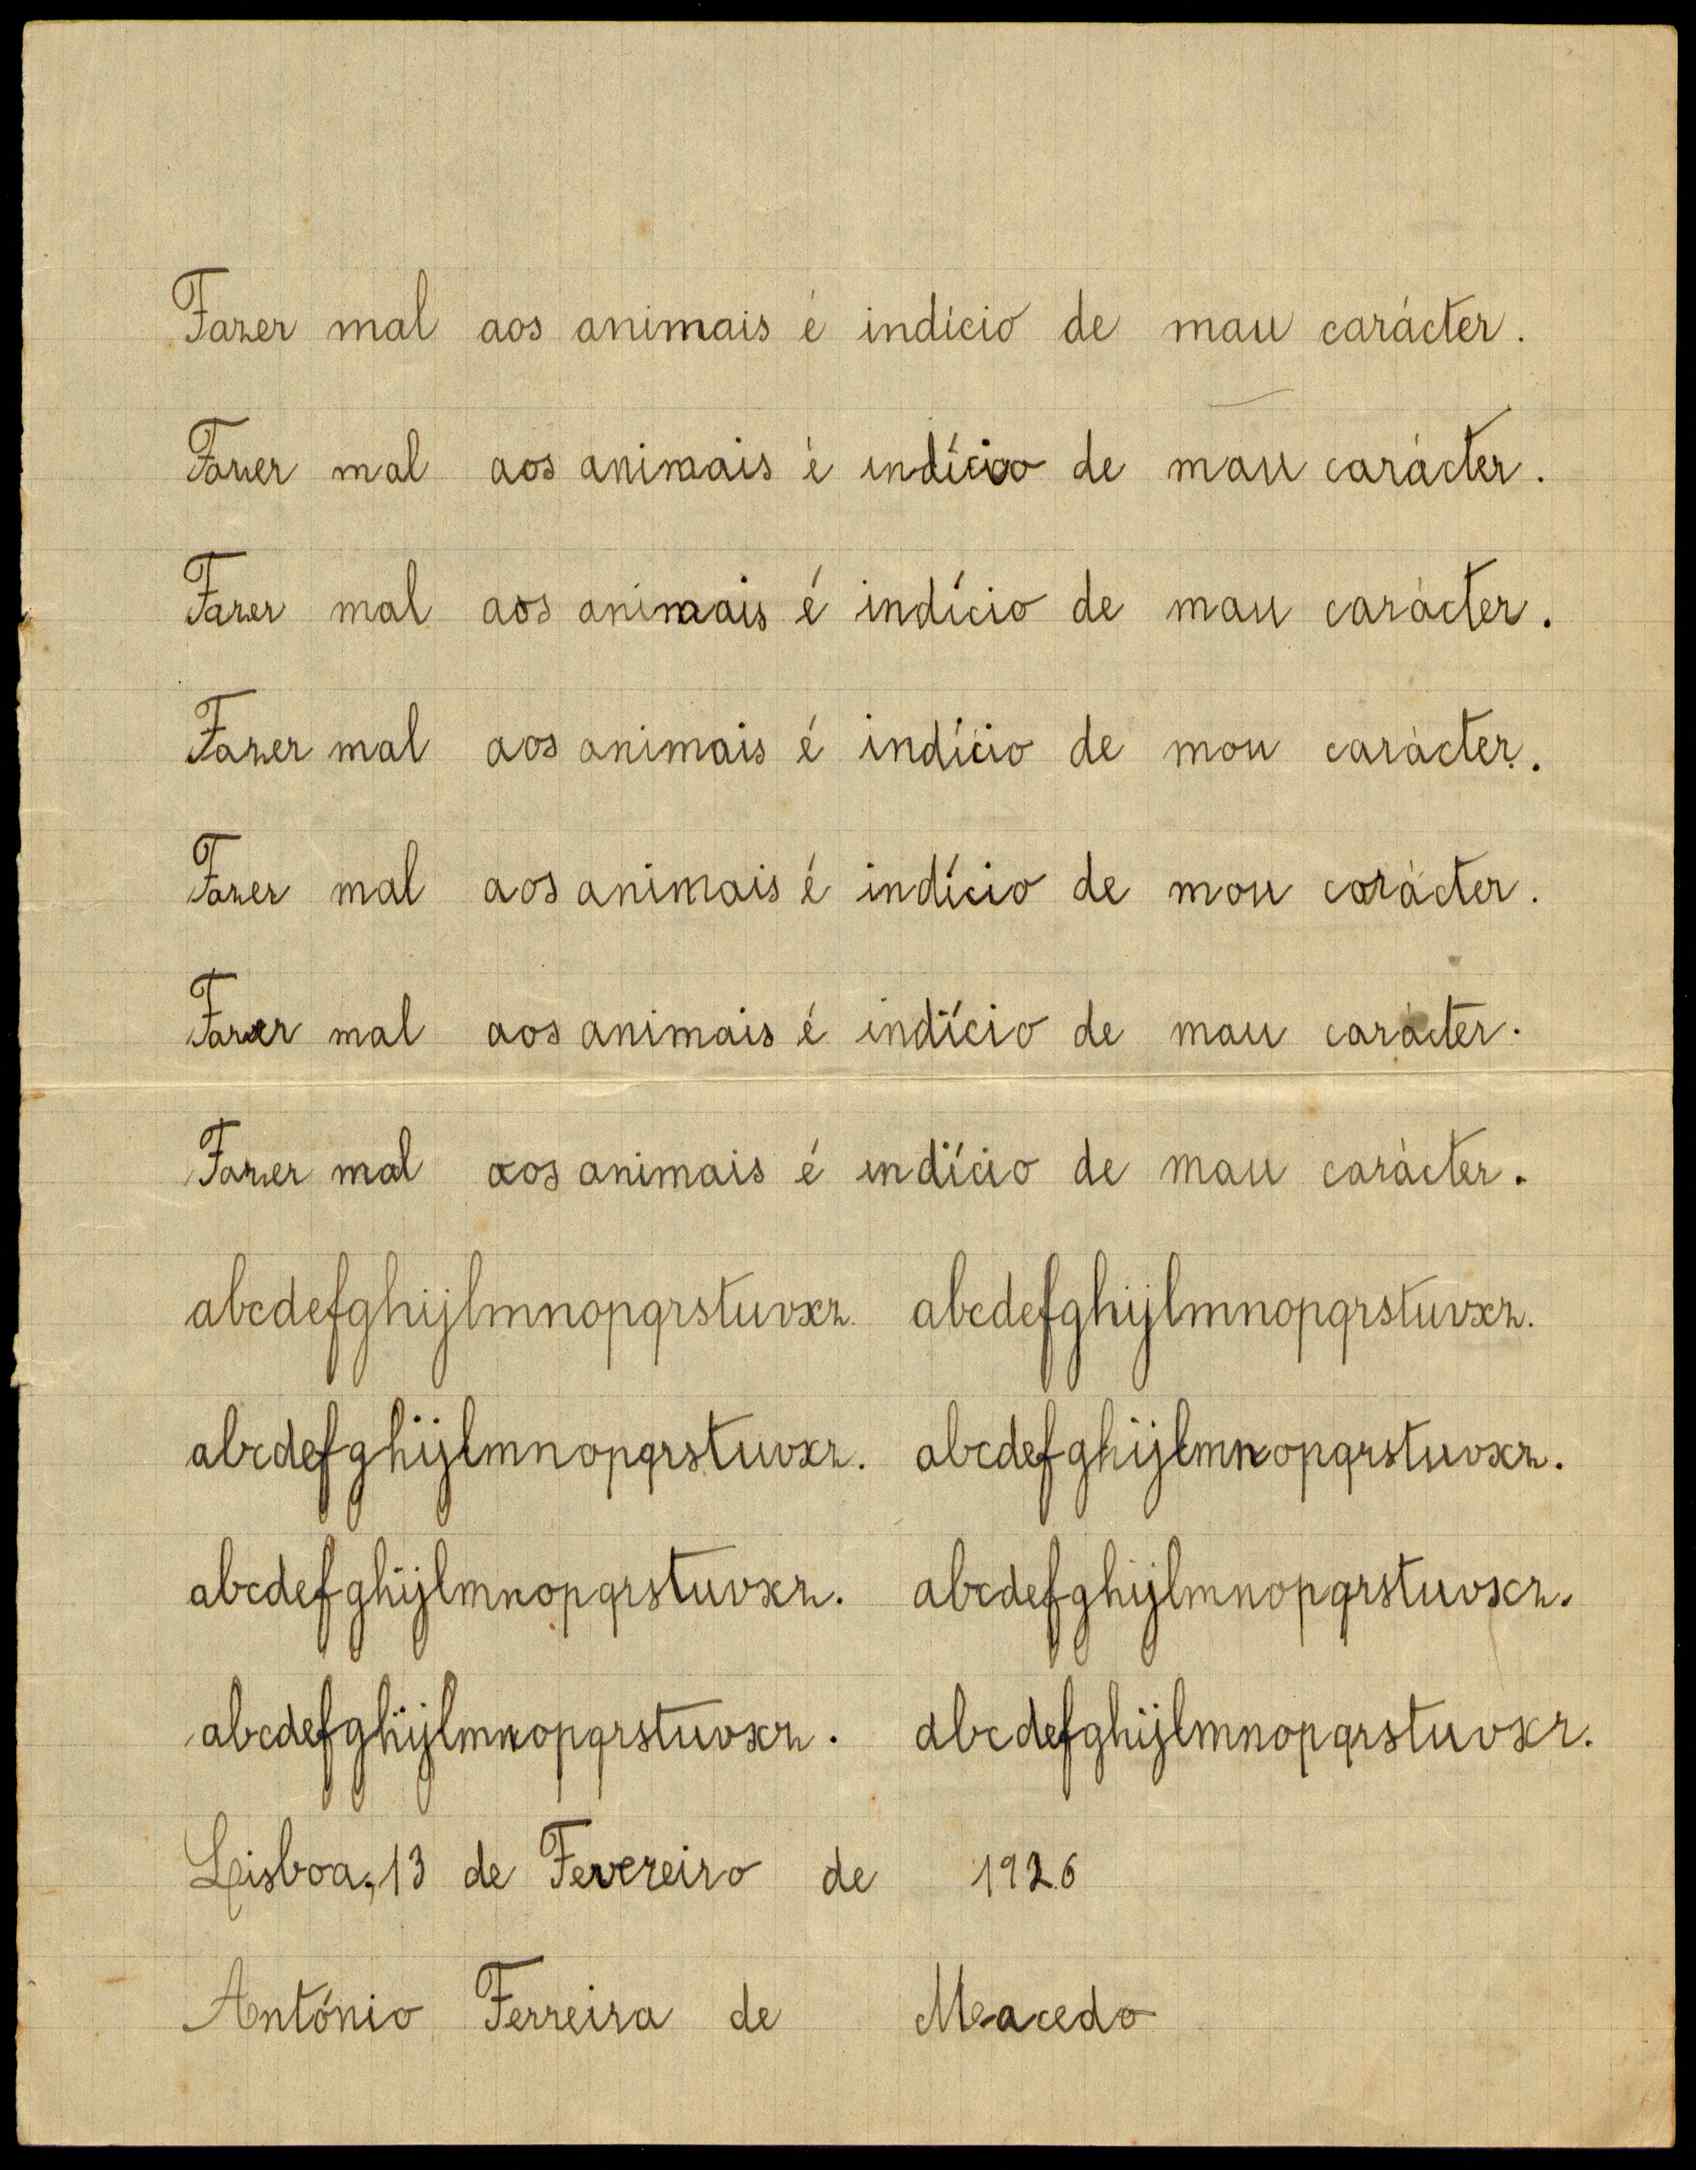 Fazer mal aos animais é indício de mau carácter.
Fazer mal aos animais é indício de mau carácter.
Fazer mal aos animais é indício de mau carácter.
Fazer mal aos animais é indício de mau carácter.
Fazer mal aos animais é indício de mau carácter.
Fazer mal aos animais é indício de mau carácter.
Fazer mal aos animais é indício de mau carácter.
abcdefghijlmnopqrstuvxz. abcdefghijlmnopqrstuvxz.
abcdefghijlmnopqrstuvxz. abcdefghijlmnopqrstuvxz.
abcdefghijlmnopqrstuvxz. abcdefghijlmnopqrstuvxz.
abcdefghijlmnopqrstuvxz. abcdefghijlmnopqrstuvxz.
Lisboa, 13 de Fevereiro de 1926
António Ferreira de Macedo